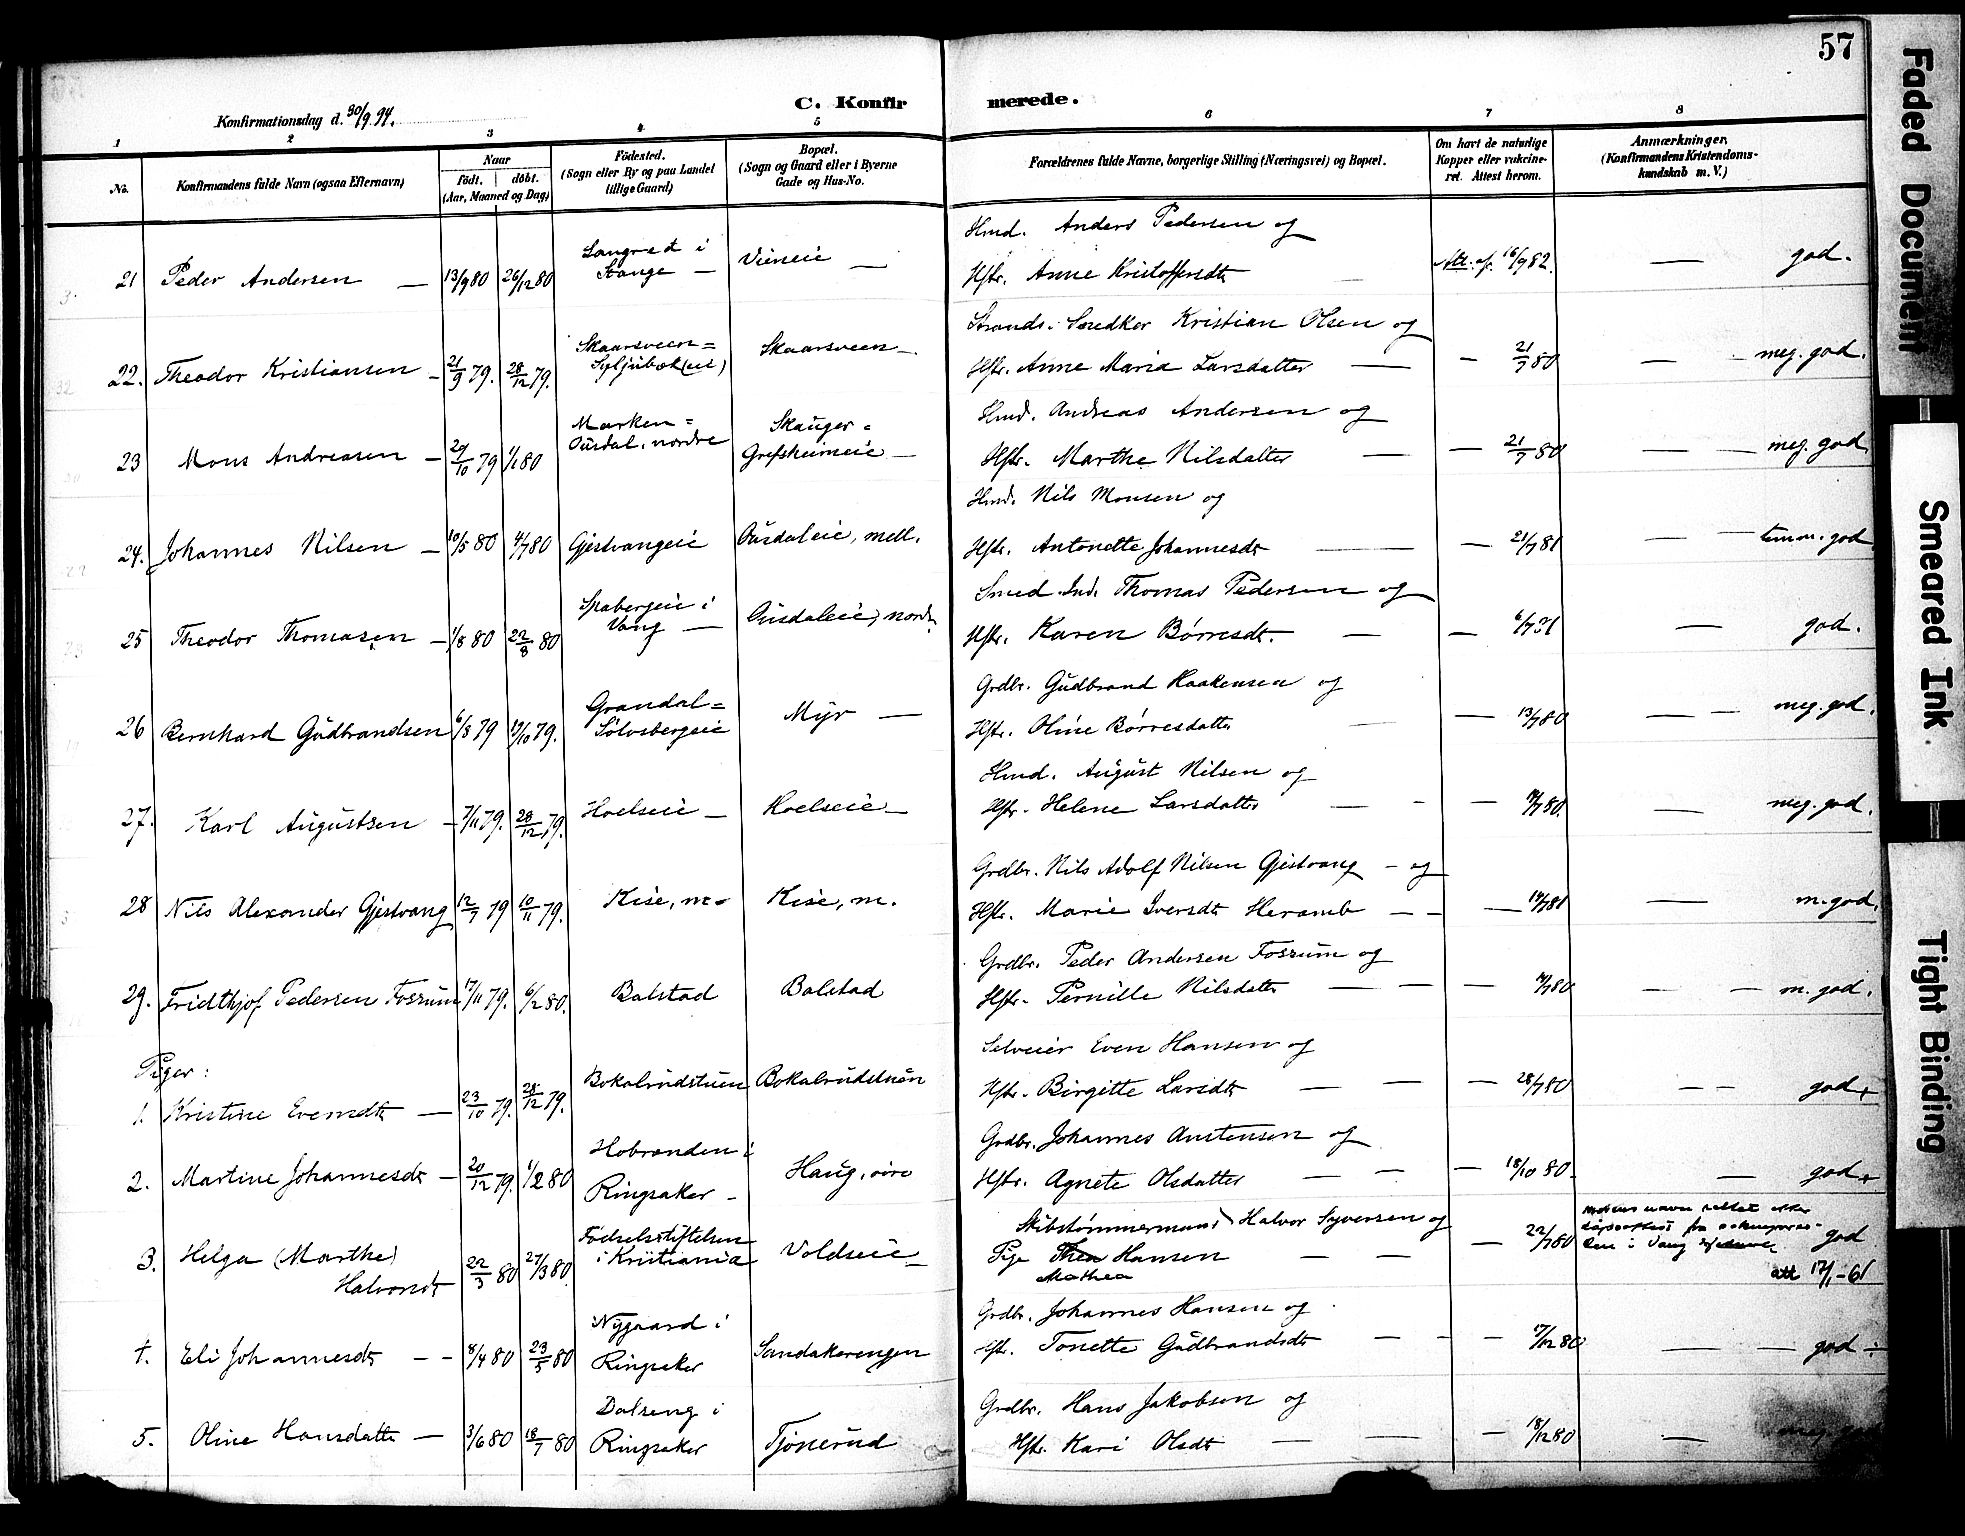 57
C. Konfirmerede.
Konfirmationsdag d. 30/9 94.
1 2 3 4 5 6 7 8
No.
Konfirmandens fulde Navn (ogsaa Efternavn)
Naar
født. døbt.
(Aar, Maaned og Dag)
Fødested.
(Sogn eller By og paa Landet
tillige Gaard)
Bopæl.
(Sogn og Gaard eller i Byerne
Gade og Hus-No.
Forældrenes fulde Navne, borgerlige Stilling (Næringsvei) og Bopæl.
Om havt de naturlige
Kopper eller vakcine-
ret. Attest herom.
Anmærkninger,
(Konfirmandens Kristendoms-
kundskab m. V.)
Hmd. Anders Pedersen og
21 Peder Andersen — 13/9 80 26/12 80 i Stange — — Hstr. Anne Kristoffersdtr Att. af. 16/9 82. — god.
Kristian Olsen og
22. Theodor Kristiansen — 21/9 79. 28/12 79. Skaarsveen — Hstr. Anne Maria Larsdatter — — 21/7 80 — — meg. god.
Hmd. Andreas Andersen og
23 Mons Andreasen — 29/10 79 1/1 80 nordre Skauger = Grefsheimeie — Hstr. Marthe Nilsdatter — — 21/7 80 — — meg. god
Hmd. Nils Monsen og
24. Johannes Nilsen — 10/5 80 4/7 80 Gjestvangeie mell. Hstr. Antonette Johannesdtr — — 21/7 81 — — god
Smed Thomas Pedersen og
25 Theodor Thomasen — 1/8 80 22/8 80 i Vang — Hstr. Karen Børresdtr. — — — god.
Grdbr. Gudbrand Haakensen og
26 Bernhard Gudbrandsen 6/8 79 Grandal = Sølvsbergeie Myr — Hstr. Oline Børresdatter — — 13/7 80 — — meg. god.
Hmd. August Nilsen og
27. Karl Augustsen — 7/11 79. 28/12 79. Hoelseie — Hoelseie — Hstr. Helene Larsdatter — — — — meg. god.
Grdbr. Nils Adolf Nilsen Gjestvang — og
28 Nils Alexander Gjestvang 12/7 79 10/11 79. Kise, m. Kise, m. Hstr. Marie Iversdtr Heramb — — — — m. god.
Grdbr. Peder Andersen Fossum og
29. Fridthjof Pedersen Fossum 17/11 79. 6/2 80. Balstad Balstad Hstr. Pernille Nilsdatter — — — — — m. god.
Piger:
Selveier Even Hansen og
1. Kristine Evensdtr — 23/10 79. 28/12 79. Bokalrudstuen Bokalrudstuen Hstr. Birgitte Larsdtr — — — 28/7 80 — — god
Grdbr. Johannes Austensen og
2. Martine Johannesdtr — 20/12 79. 1/2 80 i Ringsaker — Haug, øvre Hstr. Agnete Olsdatter — — — 18/10 80. — god
Skibstømmermand Halvor Syversen og
3. Helga (Marthe) Halvorsdtr 22/3 80 27/3 80. Fødselsstiftelsen i Kristiania Voldseie — Pige Thea Hansen — — — 22/7 80 god
Mathea
Moderens navn rettet efter
att 17/1-61
Grdbr. Johannes Hansen og
4. Eli Johannesdtr — — 8/4 80 23/5 80 Nygaard i Ringsaker Sandakerengen Hstr. Tonette Gudbrandsdtr — — — 17/12 80 — — god
Grdbr. Hans Jakobsen og
5. Oline Hansdatter — 3/6 80 18/7 80 Dalseng i Ringsaker Tjønerud Hstr. Kari Olsdtr — — — 18/12 80 —
Faded Document
Smeared Ink
Tight Binding